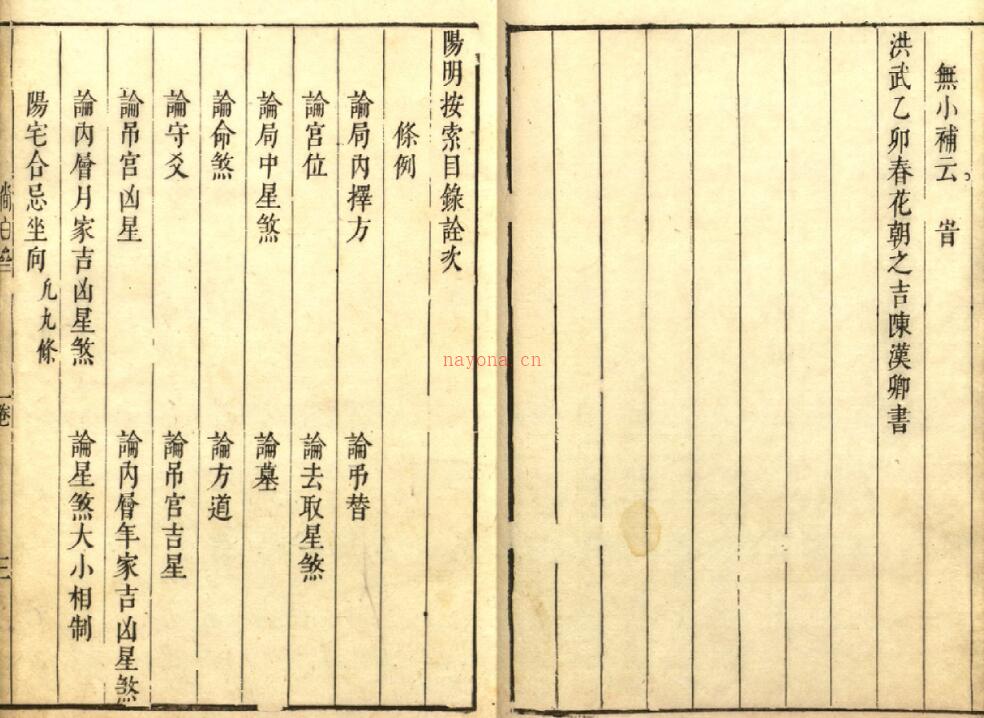 無小補云　旹
洪武乙卯春花朝之吉陳漢卿書
陽明按索目錄詮次
條例
論局內擇方　論弔替
論宮位　論去取星煞
論局中星煞　論墓
論命煞　論方道
論守爻　論吊宮吉星
論吊宮凶星　論內層年家吉凶星煞
論內層月家吉凶星煞　論星煞大小相制
陽宅合忌坐向　凡九條
一卷　三
nayona.cn